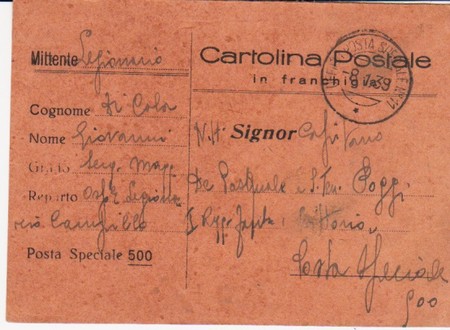 Mittente Legionario
Cognome Di Cola
Nome Giovanni
Grado Serg. Magg.
Reparto
Posta Speciale 500
Cartolina Postale
in franchigia
POSTA SPECIALE
39
N.H. Signor Capitano
De Pasquale e S. Ten. Poggi
I
Posta Speciale
500